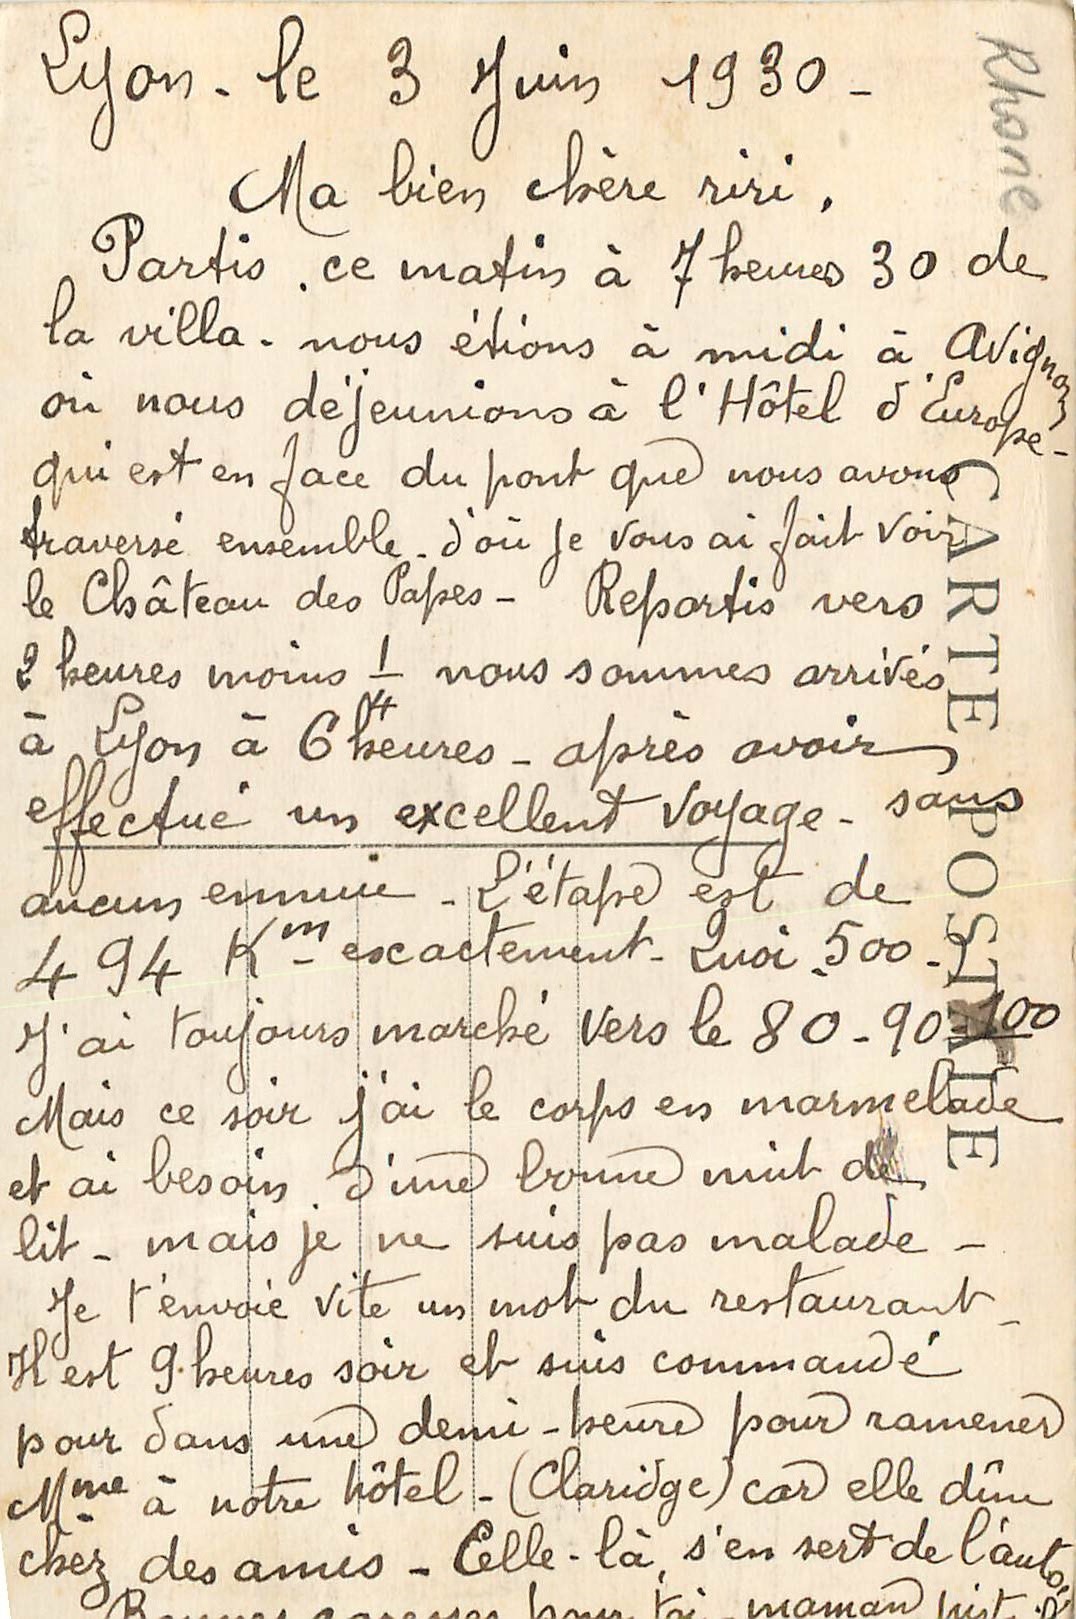 Lyon - le 3 Juin 1930 -
Rhone
Ma bien chère riri,
Partis ce matin à 7 heures 30 de
la villa - nous étions à midi à Avignon
où nous déjeunions à l'Hôtel d'Europe -
qui est en face du pont que nous avons
traversé ensemble - d'où je vous ai fait voir
le Château des Papes - Repartis vers
2 heures moins 1/4 nous sommes arrivés
à Lyon à 6 heures - après avoir
effectué un excellent voyage - sans
aucun ennuie - L'étape est de
494 Km escactement - Quoi 500 -
J'ai toujours marché vers le 80 - 90 - 100
Mais ce soir j'ai le corps en marmelade
et ai besoin d'une bonne nuit de
lit - mais je ne suis pas malade -
Je t'envoie vite un mot du restaurant -
Il est 9 heures soir et suis commandé
pour dans une demi-heure pour ramener
Mme à notre hôtel - (Claridge) car elle dîne
chez des amis - Celle-là, s'en sert de l'auto
Bonnes caresses pour toi - maman
CARTE POSTALE